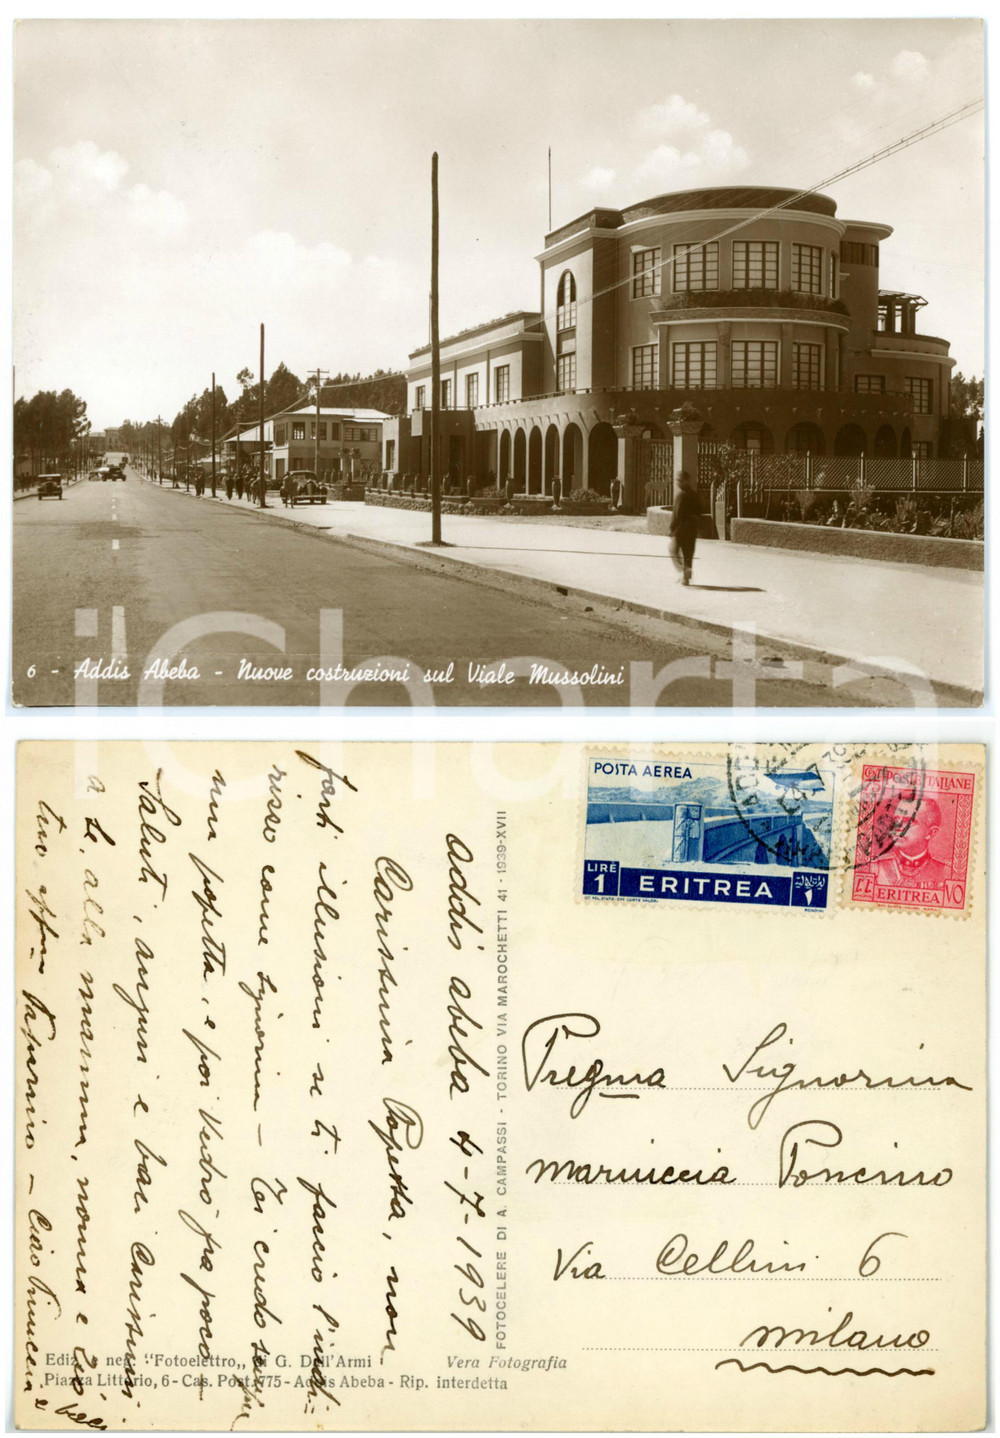 6 - Addis Abeba - Nuove costruzioni sul Viale Mussolini
iCharta
POSTA AEREA
LIRE
1
ERITREA
POSTE ITALIANE
ERITREA
Addis Abeba 4-7-1939
Carissima Popetta, non
farti illusioni se ti faccio l'indi=
risso come signorina - Ti credo
una popetta, e poi Vedrò fra poco
Saluti, auguri e baci Carissimi
a te, alla mamma, nonna e
tuo Paparino - Ciao
FOTOCELERE DI A. CAMPASSI - TORINO VIA MAROCHETTI 41 - 1939-XVII
Pregma Signorina
Mariuccia Poncino
Via Cellini 6
Milano
Ediz. e neg. "Fotoelettro,, di G. Dell'Armi
Vera Fotografia
Piazza Littorio, 6 - Cas. Post. 775 - Addis Abeba - Rip. interdetta